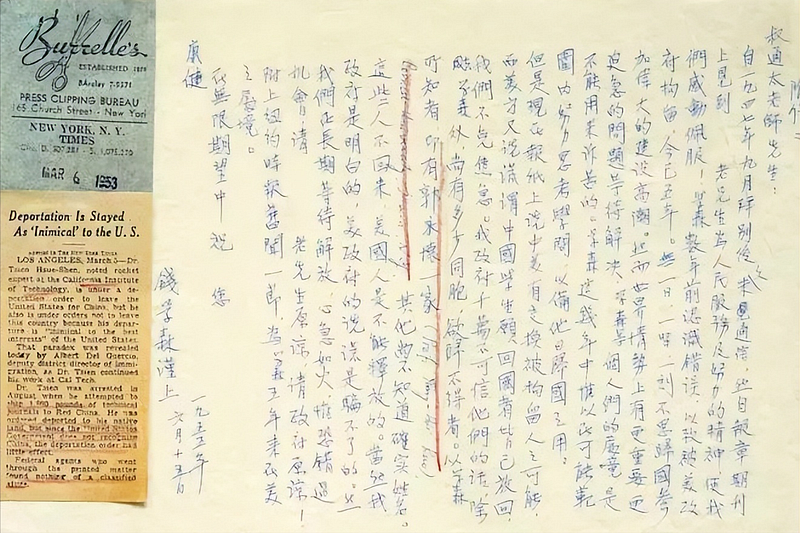 Burrelle's
ESTABLISHED 1888
BArclay 7-5371
PRESS CLIPPING BUREAU
165 Church Street - New York
NEW YORK, N. Y.
TIMES
MAR 6 1953
Deportation Is Stayed
As 'Inimical' to the U. S.
LOS ANGELES, March 5—Dr.
Tsien Hsue-Shen, noted rocket
expert at the California Institute
of Technology, is under a de-
portation order to leave the
United States for China, but he
also is under orders not to leave
this country because his depar-
ture is "inimical to the best
interests" of the United States.
That paradox was revealed
today by Albert Del Guercio,
deputy district director of immi-
gration, as Dr. Tsien continued
his work at Cal Tech.
Dr. Tsien was arrested in
August, when he attempted to
ship 1,800 pounds of technical
journals to Red China. He was
ordered deported to his native
land, but since the United States
Government does not recognize
China, the deportation order had
little effect.
Federal agents who went
through the printed matter
found nothing of a classified
nature.
叔通太老師先生：
自一九四七年九月拜別後未通信，然自報章期刊
上見到 老先生為人民服務及努力的精神，使我
們感動佩服！學森數年前認識錯誤，以致被美政
府拘留，今已五年。無一日一時一刻不思歸國參
加偉大的建設高潮。然而世界情勢上有更重要更
迫急的問題等待解決，學森等個人們的處境是
不能用來訴苦的。學森這幾年中惟以在可能範
圍內努力思考學問，以備他日歸國之用。
但是現在報紙上說中美有交換被拘留人之可能，
而美方又說謊謂中國學生願回國者皆已放回，
我們不免焦急。我政府千萬不可信他們的話，除
學森外，尚有多少同胞，欲歸不得者。以學森
所知者，即有郭永懷一家
其他尚不知道確實姓名。
這些人不回來，美國人是不能釋放的。當然我
政府是明白的，美政府的說謊是騙不了的。然
我們在長期等待解放，心急如火，惟恐錯過
機會，請 老先生原諒，請政府原諒！
附上紐約時報舊聞一節，為學森五年來在美
之處境。
在無限期望中祝 您
康健
錢學森謹上
一九五五年
六月十五日